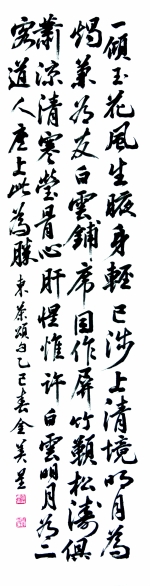 一傾玉花風生腋身輕已涉上清境明月為
燭兼為友白雲鋪席因作屏竹籟松濤俱
蕭涼清寒瑩骨心肝惺惟許白雲明月為二
客道人座上此為勝 東茶頌句乙巳春金